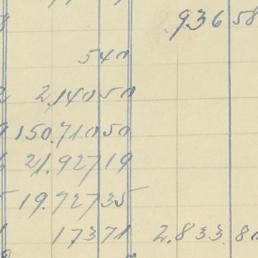 .936 58
540
2,140 50
150.710 50
21.927 19
19.727 35
173 71 2.833.8